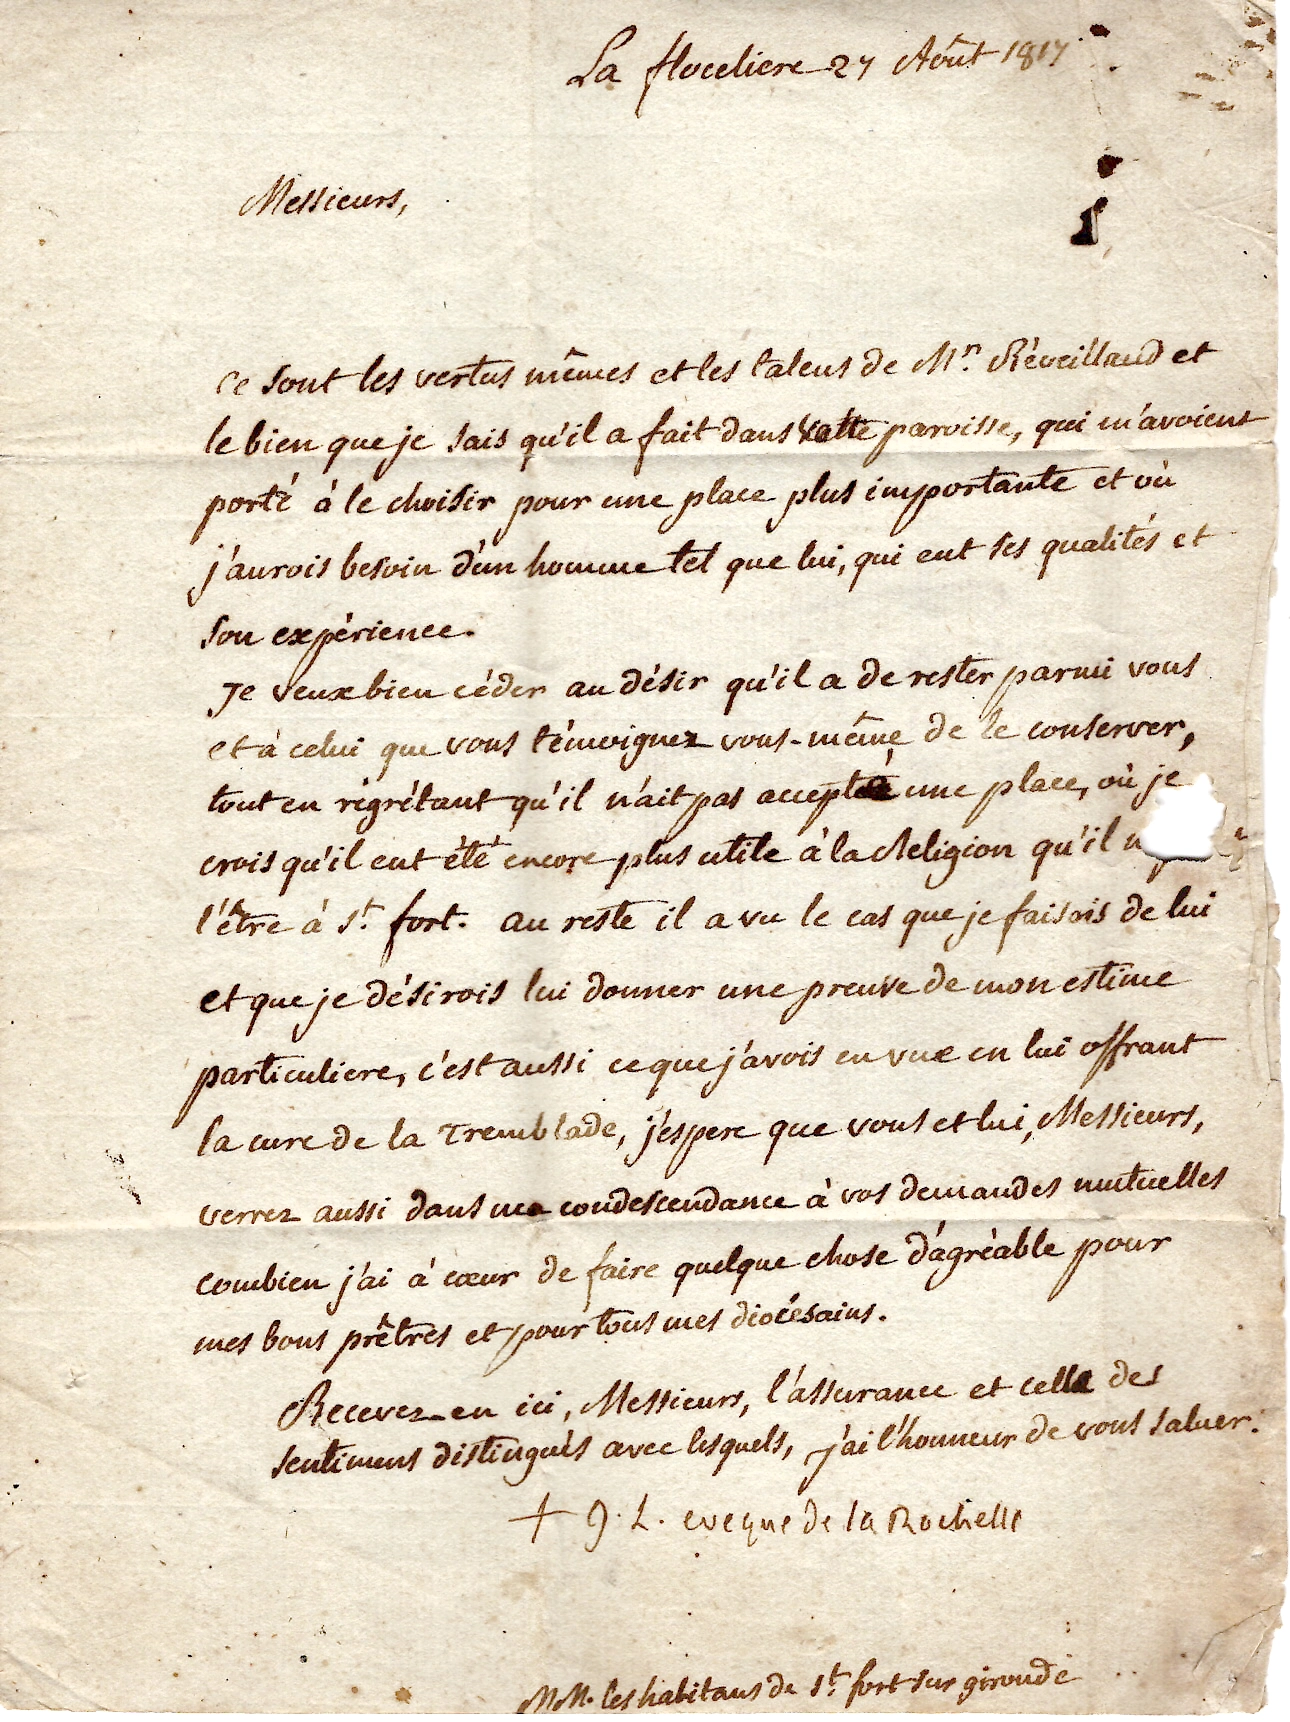 La floceliere 27 Août 1817
Messieurs,
ce sont les vertus mêmes et les talens de Mr. Réveillaud et
le bien que je sais qu'il a fait dans votre paroisse, qui m'avoient
porté à le choisir pour une place plus importante et où
j'aurois besoin d'un homme tel que lui, qui eut ses qualités et
son expérience.
Je veux bien céder au désir qu'il a de rester parmi vous
et à celui que vous témoignez vous-même de le conserver,
tout en régrétant qu'il n'ait pas accepté une place, où je
crois qu'il eut été encore plus utile à la Religion qu'il
l'être à St. fort. au reste il a vu le cas que je faisois de lui
et que je désirois lui donner une preuve de mon estime
particuliere, c'est aussi ce que j'avois en vue en lui offrant
la cure de la Tremblade, j'espere que vous et lui, Messieurs,
verrez aussi dans ma condescendance à vos demandes mutuelles
combien j'ai à cœur de faire quelque chose d'agréable pour
mes bons prêtres et pour tous mes diocésains.
Recevez-en ici, Messieurs, l'assurance et celle des
sentimens distingués avec lesquels, j'ai l'honneur de vous saluer.
+ J. L. eveque de la Rochelle
MM. les habitans de St. fort sur gironde